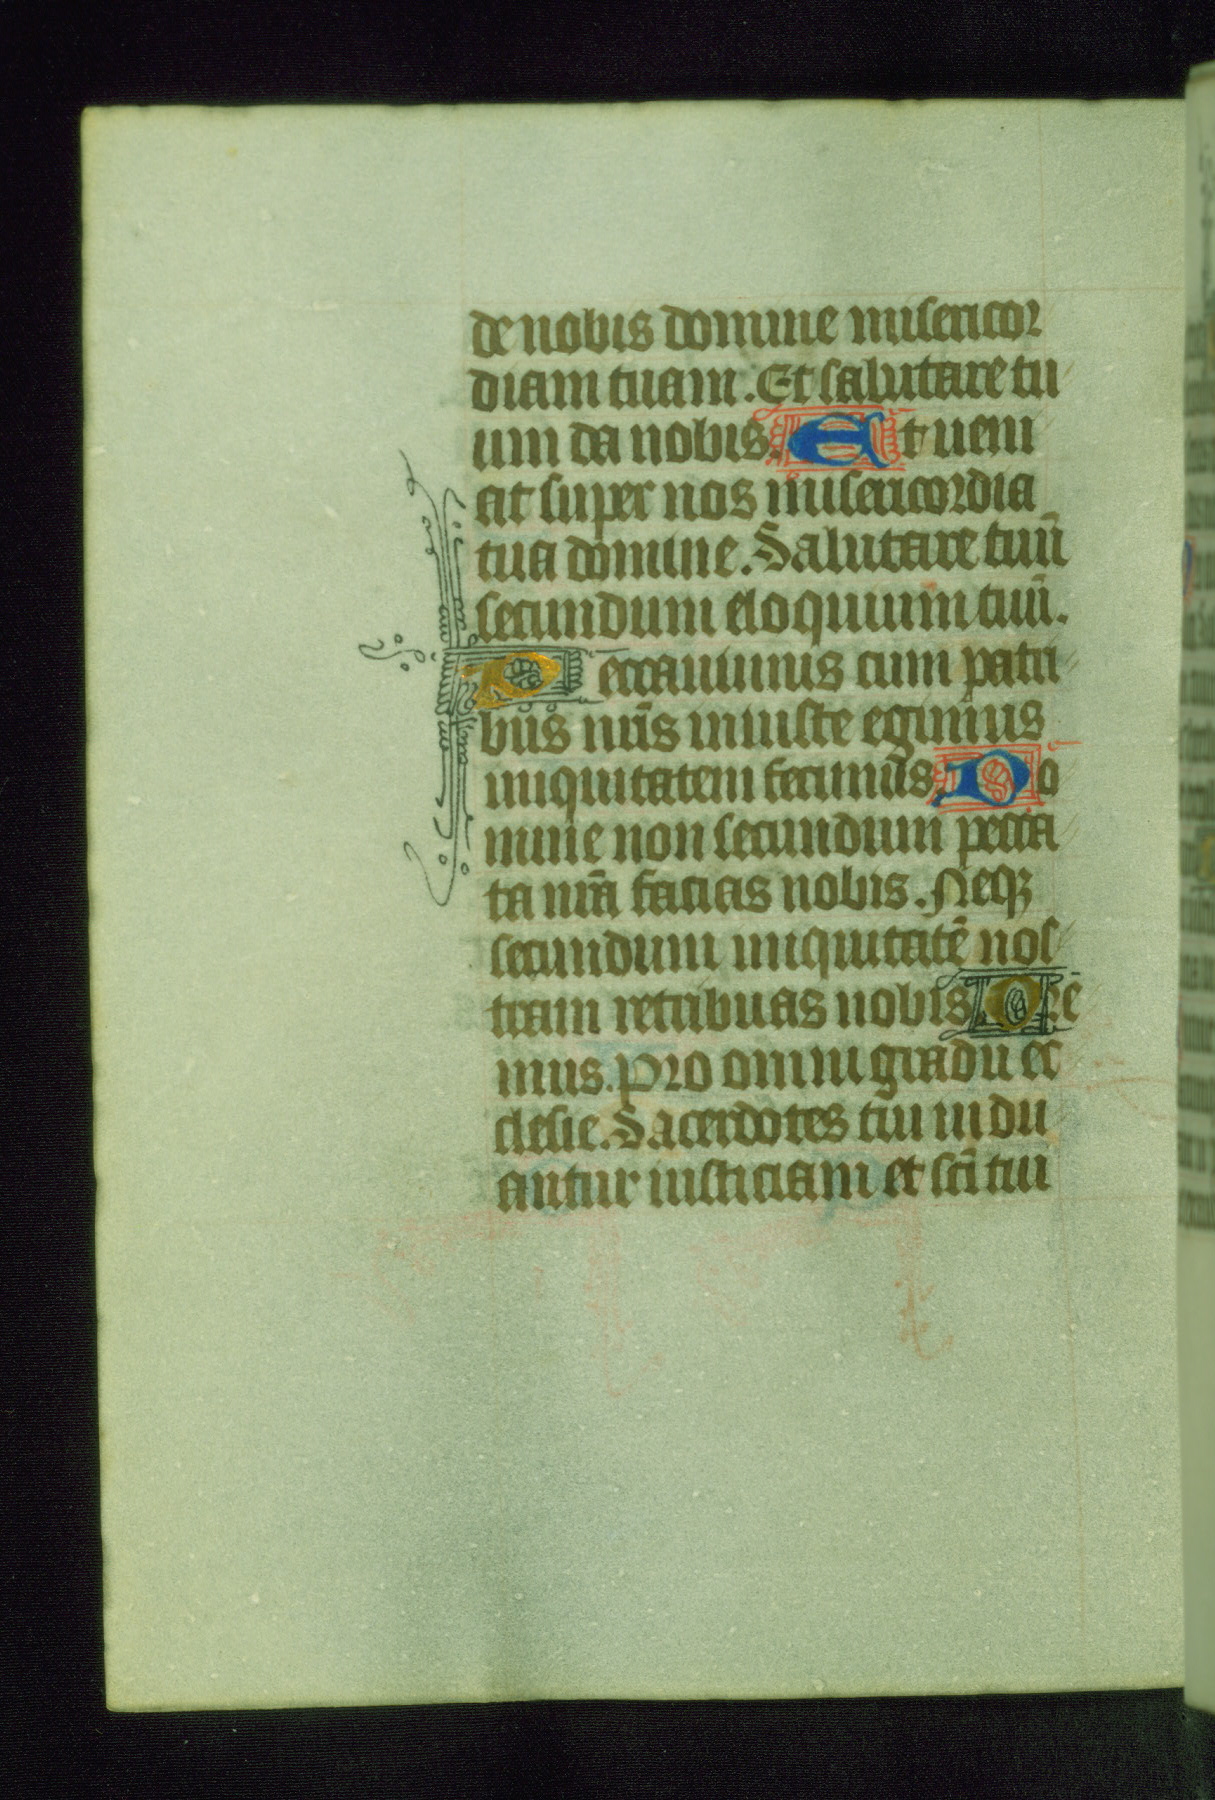 de nobis domine misericor
diam tuam. Et salutare tu
um da nobis. Et ueni
at super nos misericordia
tua domine. Salutare tuū
secundum eloquium tuū.
Peccauimus cum patri
bus nr̄is iniuste egimus
iniquitatem fecimus. Do
mine non secundum pecca
ta nr̄a facias nobis. Neqꝫ
secundum iniquitatē nos
tram retribuas nobis Ore
mus. Pro omni gradu ec
clesie. Sacerdotes tui indu
antur iusticiam et sc̄i tui